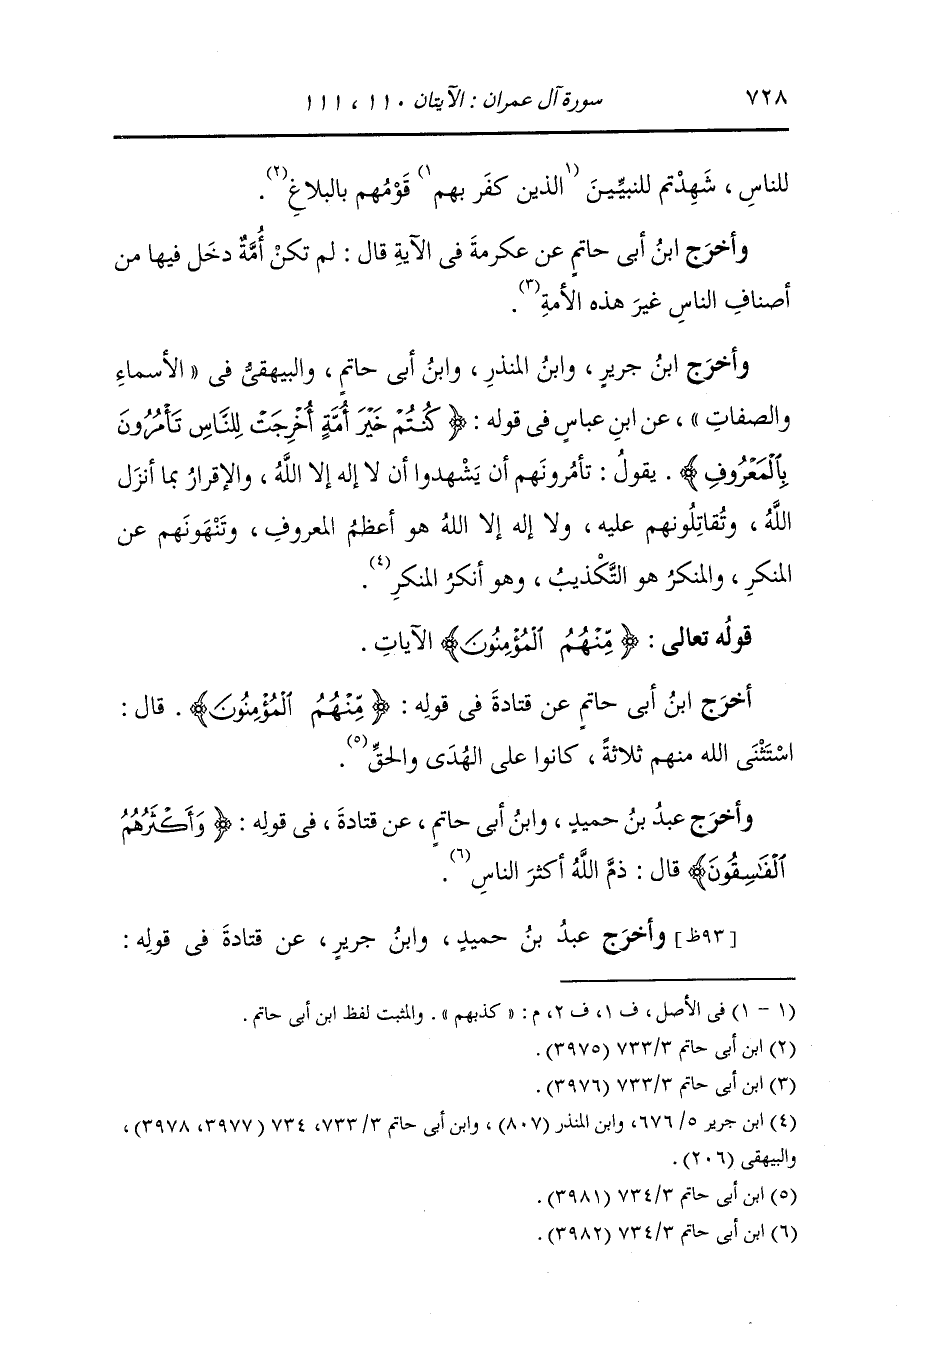 ٧٢٨ سورة آل عمران : الآيتان ١١٠ ، ١١١
للناسِ ، شَهِدْتم للنبيِّينَ (١الذين كفَر بهم١) قَوْمُهم بالبلاغِ(٢).
وأخرَج ابنُ أبى حاتمٍ عن عكرمةَ فى الآيةِ قال : لم تكنْ أُمَّةٌ دخَل فيها من
أصنافِ الناسِ غيرَ هذه الأمةِ(٣).
وأخرَج ابنُ جريرٍ ، وابنُ المنذرِ ، وابنُ أبى حاتمٍ ، والبيهقىُّ فى « الأسماءِ
والصفاتِ » ، عن ابنِ عباسٍ فى قوله : ﴿ كُنتُمْ خَيْرَ أُمَّةٍ أُخْرِجَتْ لِلنَّاسِ تَأْمُرُونَ
بِٱلْمَعْرُوفِ ﴾ . يقولُ : تأمُرونَهم أن يَشْهدوا أن لا إله إلا اللَّهُ ، والإقرارُ بما أنزَل
اللَّهُ ، وتُقاتِلُونهم عليه ، ولا إله إلا اللهُ هو أعظمُ المعروفِ ، وتَنْهَونَهم عن
المنكرِ ، والمنكرُ هو التَّكْذيبُ ، وهو أنكرُ المنكرِ(٤).
قولُه تعالى : ﴿ مِّنْهُمُ ٱلْمُؤْمِنُونَ﴾ الآياتِ .
أخرَج ابنُ أبى حاتمٍ عن قتادةَ فى قولِه : ﴿ مِّنْهُمُ ٱلْمُؤْمِنُونَ﴾ . قال :
اسْتَثْنَى الله منهم ثلاثةً ، كانوا على الهُدَى والحقِّ(٥).
وأخرَج عبدُ بنُ حميدٍ ، وابنُ أبى حاتمٍ ، عن قتادةَ ، فى قولِه : ﴿ وَأَكْثَرُهُمُ
ٱلْفَٰسِقُونَ﴾ قال : ذمَّ اللَّهُ أكثرَ الناسِ(٦).
[٩٣ظ] وأخرَج عبدُ بنُ حميدٍ ، وابنُ جريرٍ ، عن قتادةَ فى قولِه :
(١ - ١) فى الأصل ، ف ١، ف ٢، م : « كذبهم » . والمثبت لفظ ابن أبى حاتم .
(٢) ابن أبى حاتم ٧٣٣/٣ (٣٩٧٥).
(٣) ابن أبى حاتم ٧٣٣/٣ (٣٩٧٦).
(٤) ابن جرير ٥/ ٦٧٦، وابن المنذر (٨٠٧) ، وابن أبى حاتم ٣/ ٧٣٣، ٧٣٤ (٣٩٧٧، ٣٩٧٨) ،
والبيهقى (٢٠٦) .
(٥) ابن أبى حاتم ٧٣٤/٣ (٣٩٨١).
(٦) ابن أبى حاتم ٧٣٤/٣ (٣٩٨٢).